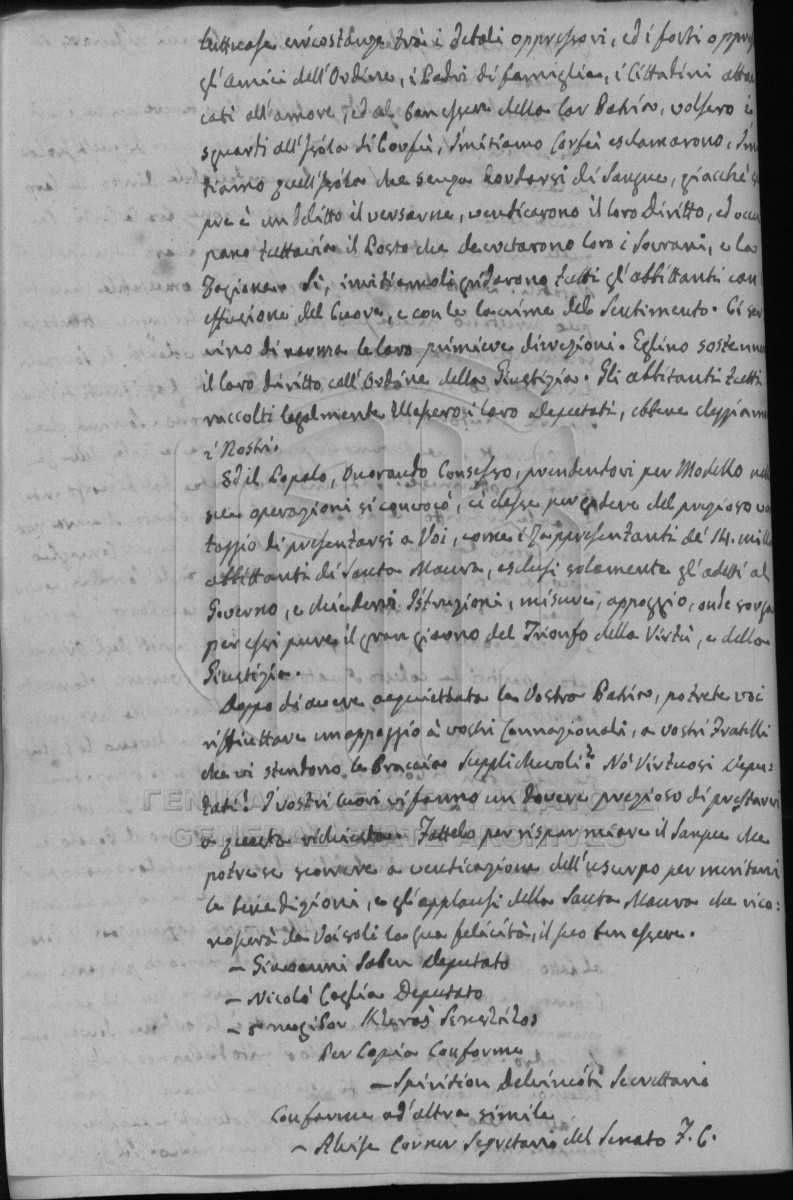 circostanza trà i deboli oppressori, ed i forti oppres
gl'amici dell'Ordine, i Padri di famiglia, i Cittadini attac
cati all'amore, ed al ben essere della lor Patria, volsero i
sguardi all'Isola di Corfù, Imitiamo Corfù esclamarono, Imi
tiamo quell'Isola che senza lordarsi di Sangue, giacchè
pre è un delitto il versarne, venticarono il loro diritto, ed occu
pano tuttavia il Posto che decretarono loro i Sovrani, e la
Raggione. Si, imitiamoli gridarono tutti gl'abbittanti con
effusione del Cuore, e con le lacrime del Sentimento. Ci ser
vino di norma le loro primiere direzioni. Eglino sostenne
il loro diritto coll'Ordine della Giustizia. Gli abbitanti tutti
raccolti legalmente elessero i loro Deputati, ebbene eleggiamo
i Nostri.
Ed il Popolo, Onorando Consesso, prendendovi per Modello nelle
sue operazioni si convocò, ci elesse per godere del prezioso va
taggio di presentarsi a Voi, come i Rappresentanti de' 14. mille
abbittanti di Santa Maura, esclusi solamente gl'adetti al
Governo, e chiedervi Istruzioni, misure, appoggio, onde sorga
per essi pure il gran giorno del Trionfo della Virtù, e della
Giustizia.
Doppo di avere acquiettata la Vostra Patria, potrete voi
riffiuttare un appoggio à vostri Connazionali, a vostri Fratelli
che vi stendono le Braccia Supplichevoli? Nò Virtuosi Depu=
tati! I vostri cuori vi fanno un dovere prezioso di prestarvi
a questa richiesta. Fattelo per risparmiare il Sangue che
potresse scorrere a venticazione dell'usurpo per meritarvi
le benedizioni, e gl'applausi della Santa Maura che rico=
noscerà da Voi soli la sua felicità, il suo ben essere.
– Giovanni Deputato
– Nicolò Deputato
–
Per Copia Conforme
– Spiridion Delvinioti Secrettario
Conforme ad altra simile
– Alvise Corner Segretario del Senato
ΓΕΝΙΚΑ ΑΡΧΕΙΑ ΤΟΥ ΚΡΑΤΟΥΣ
GENERAL STATE ARCHIVES